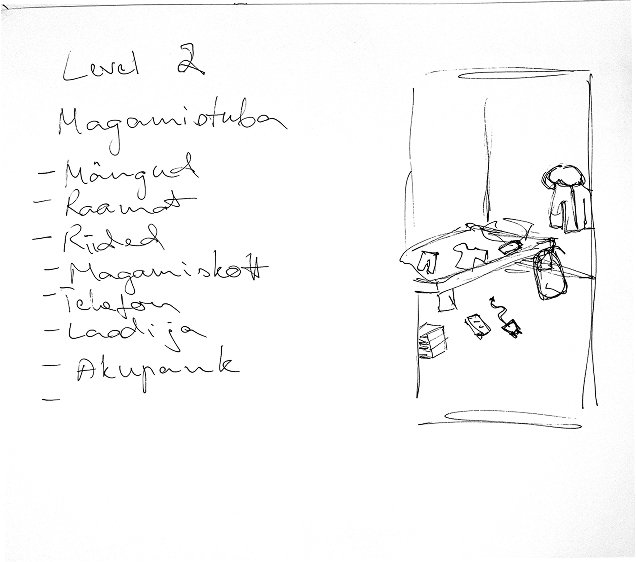 Level 2
Magamistuba
- Mängud
- Raamat
- Riided
- Magamiskott
- Telefon
- Laadija
- Akupank
-